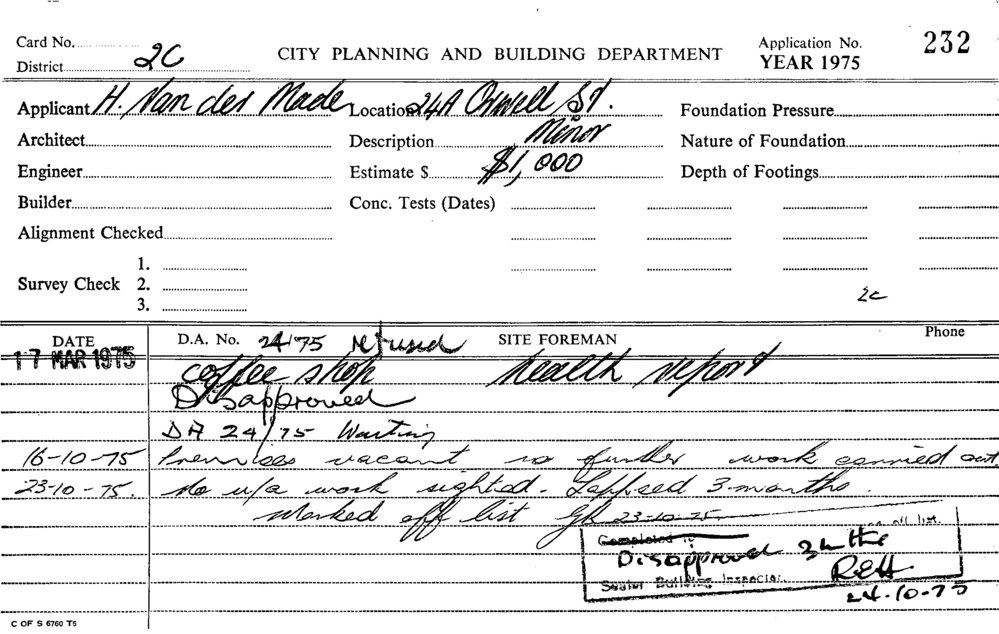 Card No. CITY PLANNING AND BUILDING DEPARTMENT Application No. 232
District 2C YEAR 1975
Applicant H. Van der Made Location 24A Orwell St. Foundation Pressure
Architect Description Minor Nature of Foundation
Engineer Estimate $ $1,000 Depth of Footings
Builder Conc. Tests (Dates)
Alignment Checked
1.
Survey Check 2.
3.
2c
DATE D.A. No. 24/75 refused SITE FOREMAN Phone
17 MAR 1975 coffee shop health report
Disapproved
DA 24/75 Waiting
16-10-75 Premises vacant no further work carried out
23-10-75. No u/a work sighted. Lapsed 3-months.
Marked off list 23-10-75
off list.
Completed
Disapproved 3 mths
Senior Building Inspector. REH
24-10-75
C OF S 6760 T5